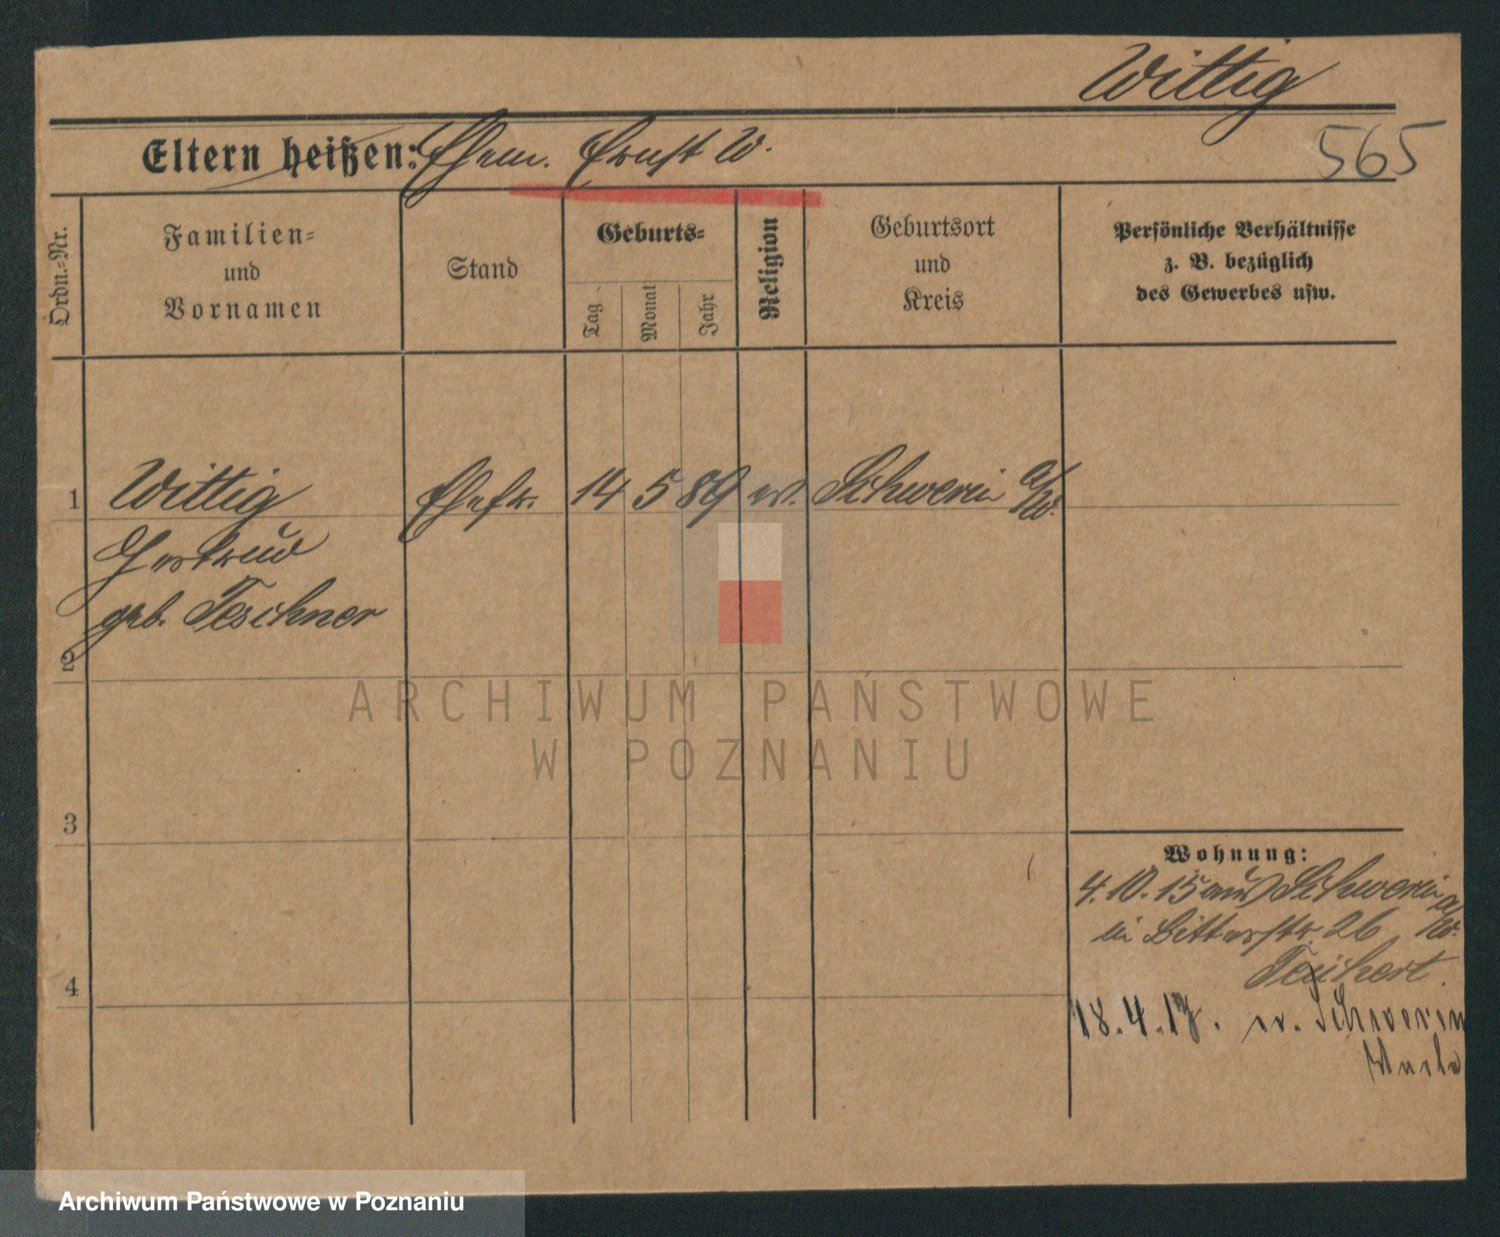 Wittig
565
Eltern heißen: Ehem. Ernst W.
Ordn.-Nr.
Familien-
und
Vornamen
Stand
Geburts-
Tag
Monat
Jahr
Religion
Geburtsort
und
Kreis
Persönliche Verhältnisse
z. B. bezüglich
des Gewerbes usw.
1 Wittig Ehefr. 14 5 89 ev. Schwerin a/W.
Gertrud
geb. Teschner
2
ARCHIWUM PAŃSTWOWE
W POZNANIU
3
Wohnung:
4.10.15 aus Schwerin a/W.
in Bitterstr. 26
Teichert.
4
18.4.17. n. Schwerin
Warthe
Archiwum Państwowe w Poznaniu